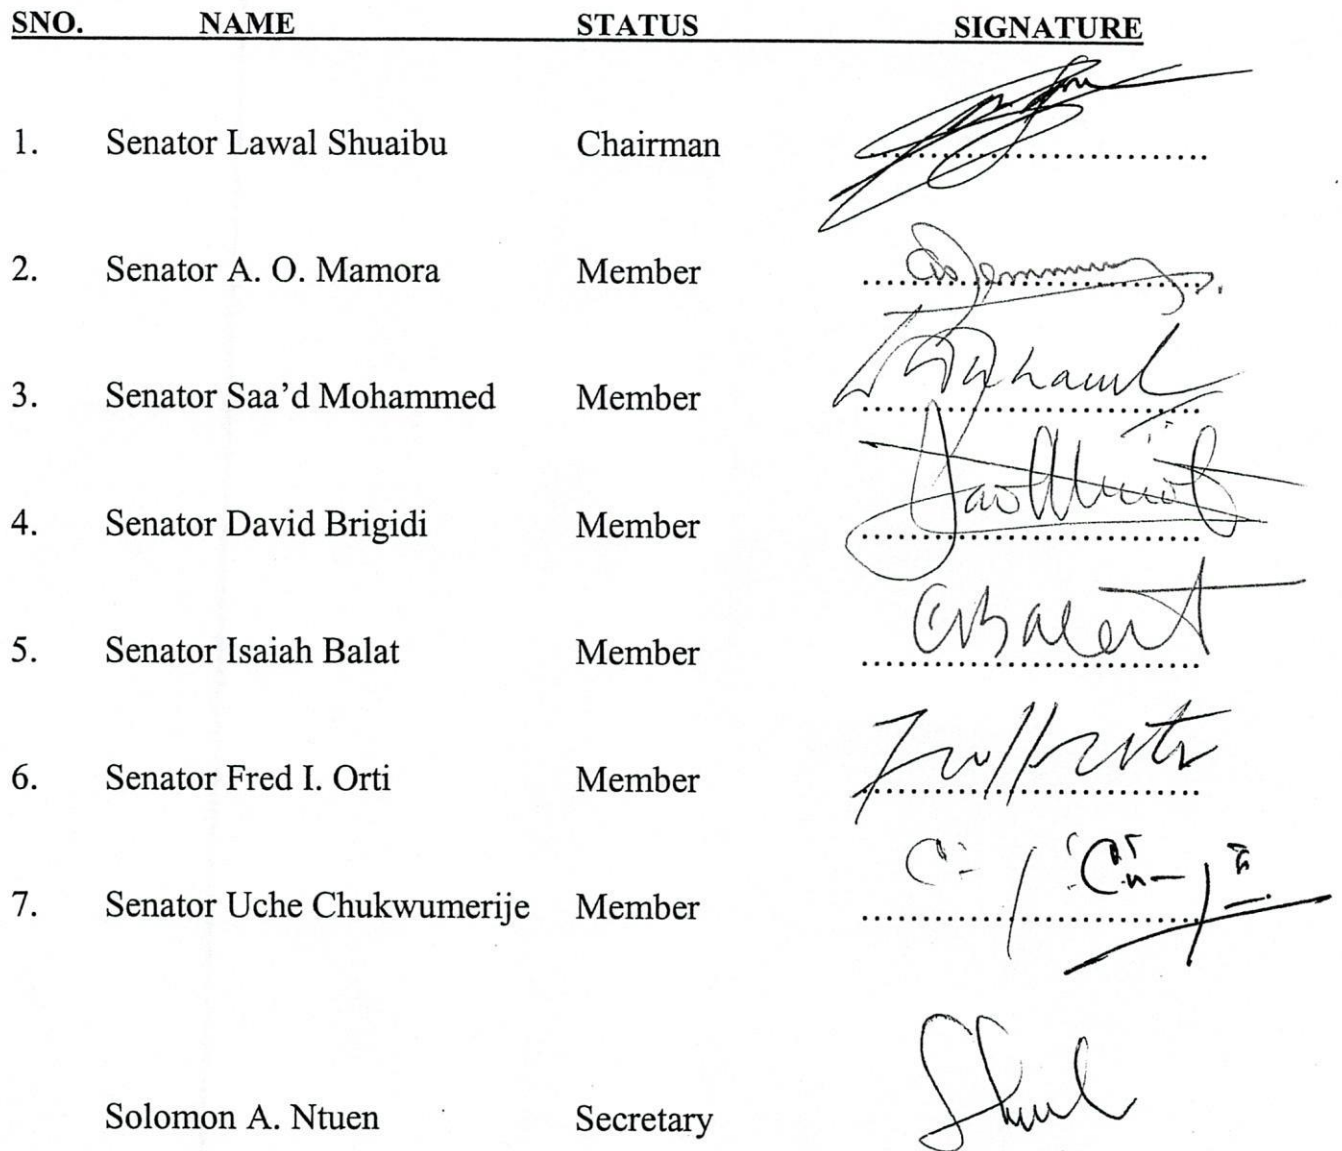 SNO. NAME STATUS SIGNATURE
1. Senator Lawal Shuaibu Chairman
2. Senator A. O. Mamora Member
3. Senator Saa'd Mohammed Member
4. Senator David Brigidi Member
5. Senator Isaiah Balat Member
6. Senator Fred I. Orti Member
7. Senator Uche Chukwumerije Member
Solomon A. Ntuen Secretary